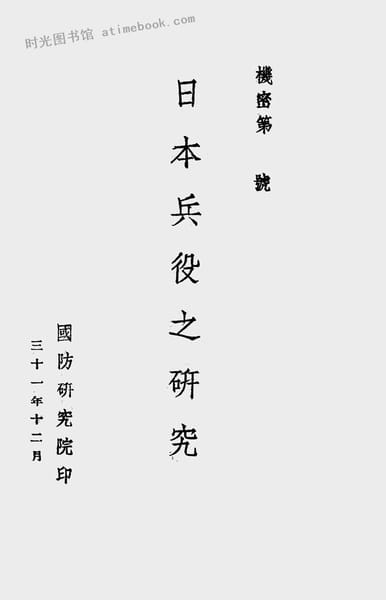 时光图书馆 atimebook.com
機密第 號
日本兵役之研究
國防研究院印
三十一年十二月